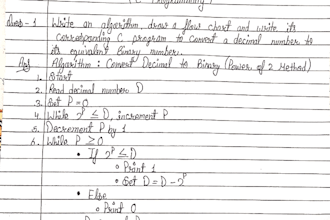 (C Programming)
Ques-1 Write an algorithm, draw a flow chart and write its
corresponding C program to convert a decimal number to
its equivalent Binary number.
Ans Algorithm: Convert Decimal to Binary (Power of 2 Method)
1. Start
2. Read decimal number D
3. Set P = 0
4. While 2^P ≤ D, increment P
5. Decrement P by 1
6. While P ≥ 0
• If 2^P ≤ D
• Print 1
• Set D = D - 2^P
• Else
• Print 0